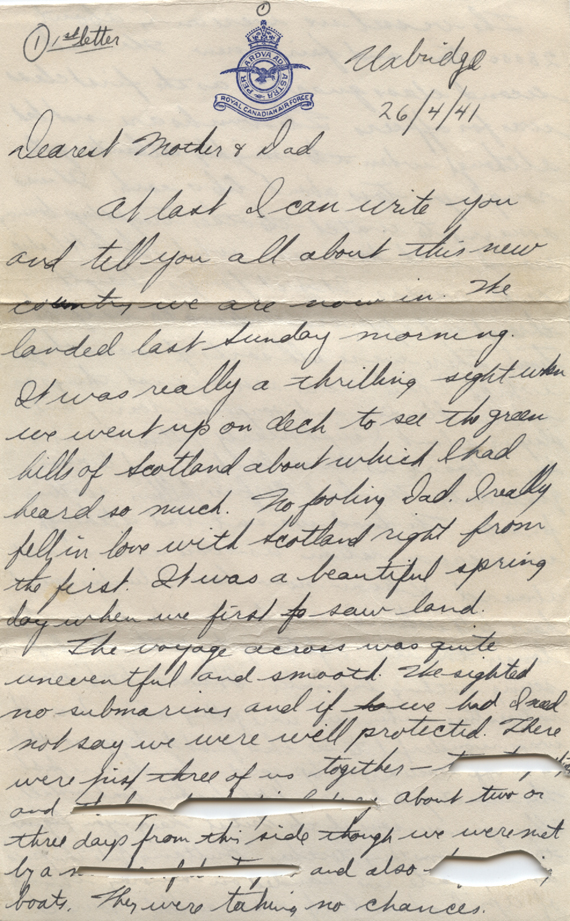 ①
① 1st letter
PER ARDVA AD ASTRA
ROYAL CANADIAN AIR FORCE
Uxbridge
26/4/41
Dearest Mother & Dad
At last I can write you
and tell you all about this new
country we are now in. We
landed last Sunday morning.
It was really a thrilling sight when
we went up on deck to see the green
hills of Scotland about which I had
heard so much. No fooling Dad. I really
fell in love with Scotland right from
the first. It was a beautiful spring
day when we first saw land.
The voyage across was quite
uneventful and smooth. We sighted
no submarines and if we had I need
not say we were well protected. There
were just three of us together –
and about two or
three days from this side though we were met
by a and also
boats. They were taking no chances.